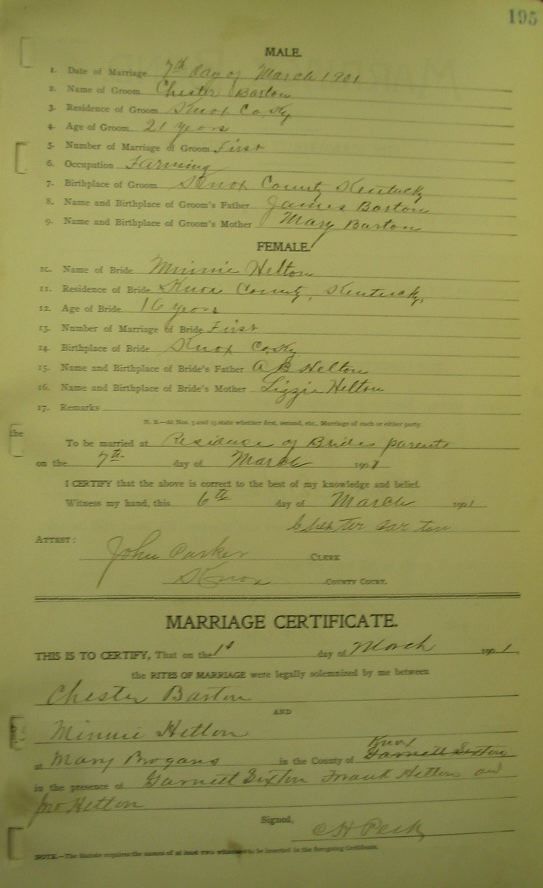 195
MALE.
1. Date of Marriage 7th day of March 1901
2. Name of Groom Chester Barton
3. Residence of Groom Knox Co Ky
4. Age of Groom 21 years
5. Number of Marriage of Groom First
6. Occupation Farming
7. Birthplace of Groom Knox County Kentucky
8. Name and Birthplace of Groom's Father James Barton
9. Name and Birthplace of Groom's Mother Mary Barton
FEMALE.
10. Name of Bride Minnie Helton
11. Residence of Bride Knox County, Kentucky,
12. Age of Bride 16 years
13. Number of Marriage of Bride First
14. Birthplace of Bride Knox Co Ky
15. Name and Birthplace of Bride's Father A B Helton
16. Name and Birthplace of Bride's Mother Lizzie Helton
17. Remarks
N. B.—At Nos. 5 and 13 state whether first, second, etc., Marriage of each or either party.
the
To be married at Residence of Brides parents
on the 7th day of March 1901
I CERTIFY that the above is correct to the best of my knowledge and belief.
Witness my hand, this 6th day of March 1901
Chester Barton
ATTEST:
John Parker CLERK
Knox COUNTY COURT.
MARRIAGE CERTIFICATE.
THIS IS TO CERTIFY, That on the day of March 1901,
the RITES OF MARRIAGE were legally solemnized by me between
Chester Barton
AND
Minnie Helton
at Mary Brogans in the County of Knox Garnett Sexton
in the presence of Garnett Sexton Frank Helton and
Jno Helton
Signed,
C H Peck
NOTE.—The Statute requires the names of at least two witnesses to be inserted in the foregoing Certificate.